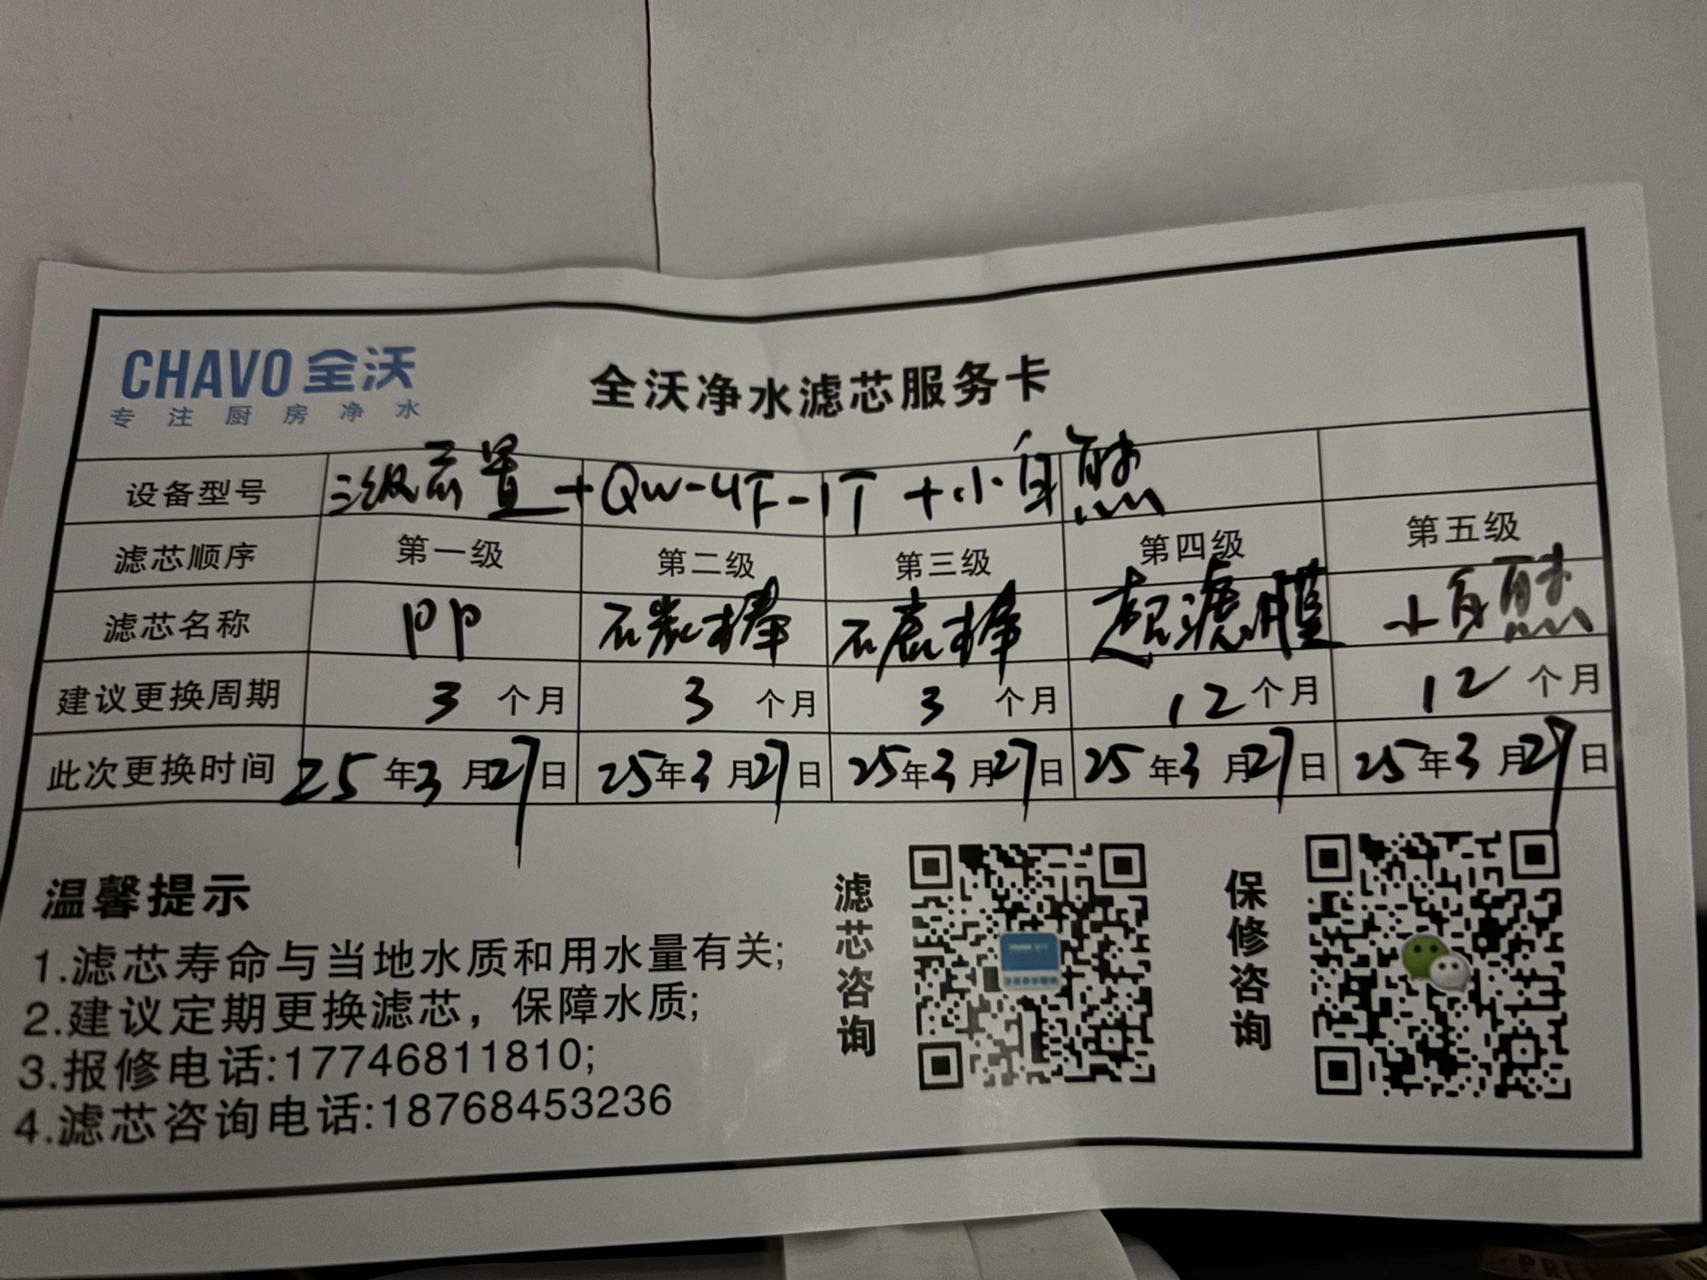 CHAVO 全沃
专注厨房净水
全沃净水滤芯服务卡
设备型号 三级前置+QW-4F-1T+小自然
滤芯顺序 第一级 第二级 第三级 第四级 第五级
滤芯名称 PP 石炭棒 石炭棒 超滤膜 小自然
建议更换周期 3个月 3个月 3个月 12个月 12个月
此次更换时间 25年3月27日 25年3月27日 25年3月27日 25年3月27日 25年3月27日
温馨提示
1.滤芯寿命与当地水质和用水量有关;
2.建议定期更换滤芯，保障水质;
3.报修电话:17746811810;
4.滤芯咨询电话:18768453236
滤芯咨询
保修咨询